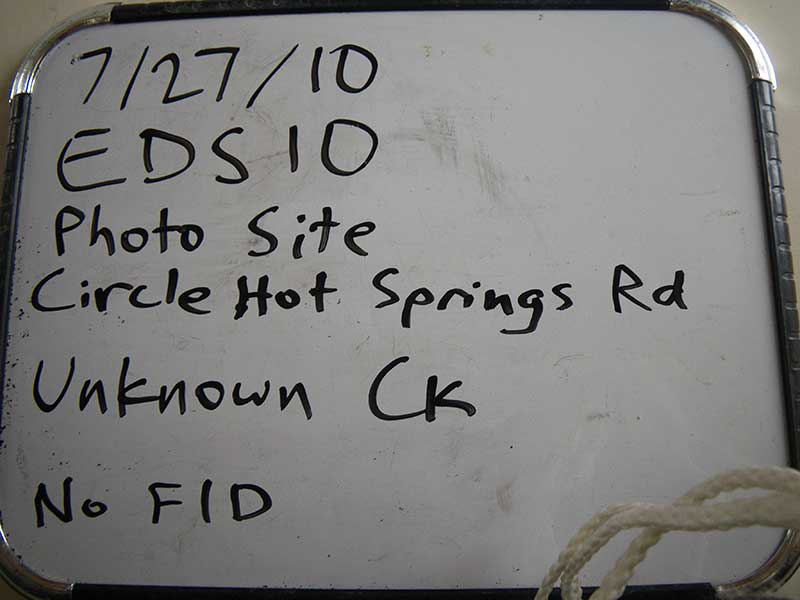 7/27/10
EDS10
Photo Site
Circle Hot Springs Rd
Unknown Ck
No FID